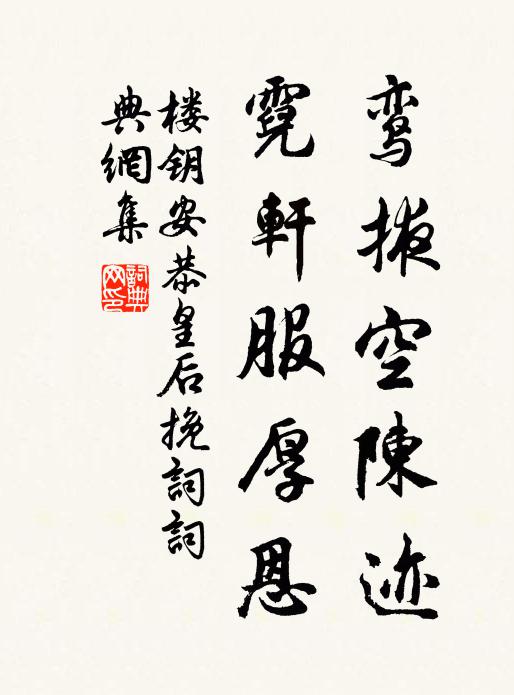 鸾掖空陳迹
霓軒服厚恩
楼钥安恭皇后挽詞詞
典網集
詞典網印